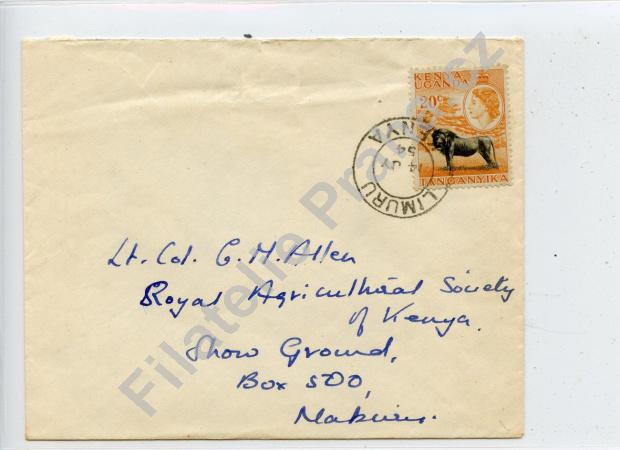 KENYA
UGANDA
20c
TANGANYIKA
LIMURU
KENYA
54
Lt. Col. G. M. Allen
Royal Agricultural Society
of Kenya.
Show Ground,
Box 500,
Nakuru.
Filatelie Pra .cz